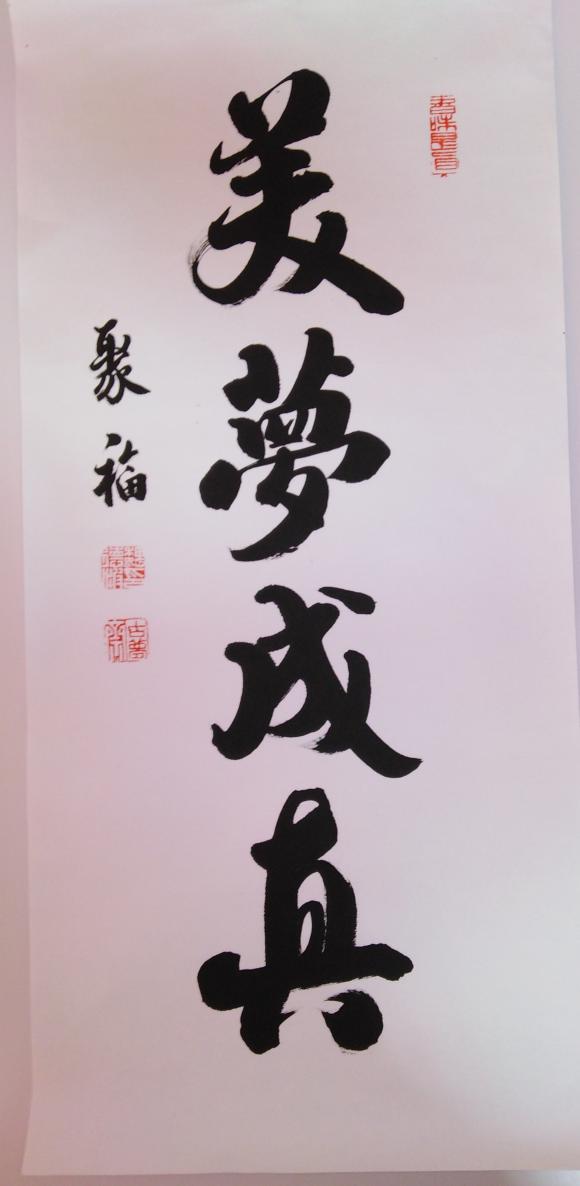 美夢成真
聚福